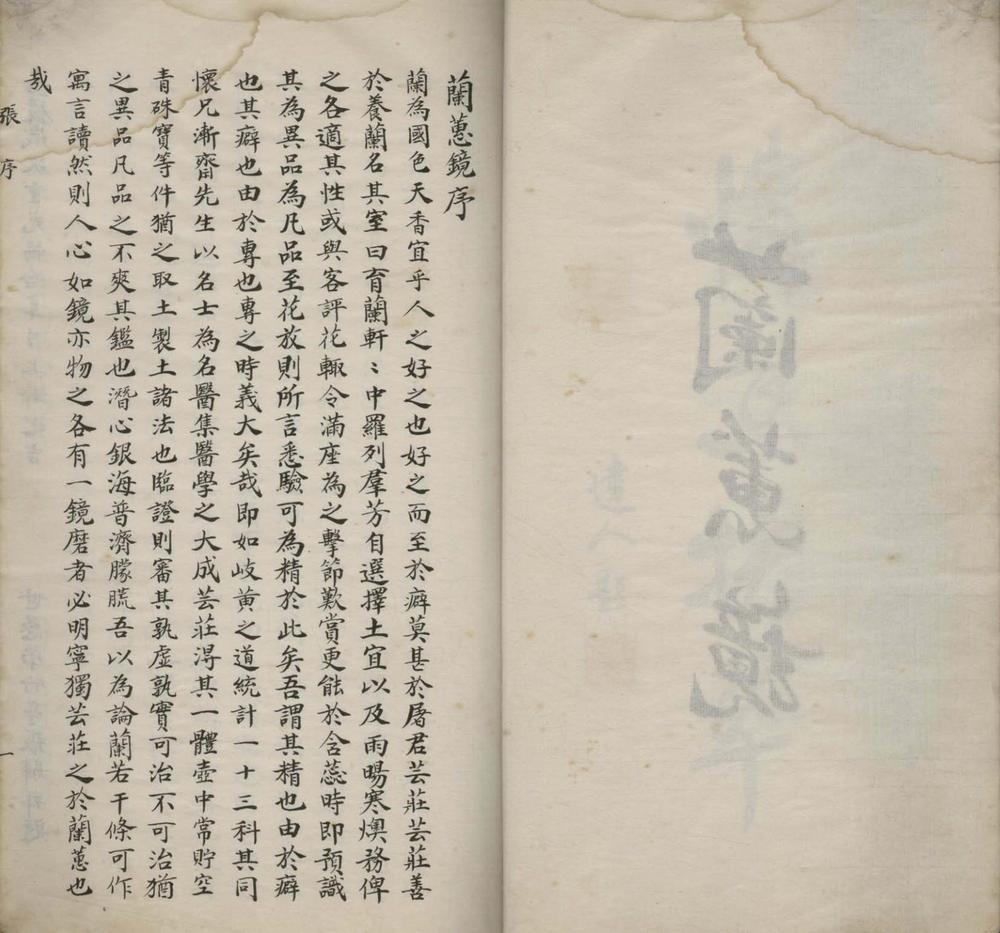 蘭蕙鏡序
蘭為國色天香宜乎人之好之也好之而至於癖莫甚於屠君芸莊芸莊善
於養蘭名其室曰育蘭軒〻中羅列羣芳自選擇土宜以及雨暘寒燠務俾
之各適其性或與客評花輙令滿座為之擊節歎賞更能於含蕊時即預識
其為異品為凡品至花放則所言悉驗可為精於此矣吾謂其精也由於癖
也其癖也由於專也專之時義大矣哉即如岐黃之道統計一十三科其同
懷兄漸齋先生以名士為名醫集醫學之大成芸莊淂其一體壺中常貯空
青硃寶等件猶之取土製土諸法也臨證則審其孰虛孰實可治不可治猶
之異品凡品之不爽其鑑也潛心銀海普濟朦朧吾以為論蘭若干條可作
寓言讀然則人心如鏡亦物之各有一鏡磨者必明寧獨芸莊之於蘭蕙也
哉
張序
一